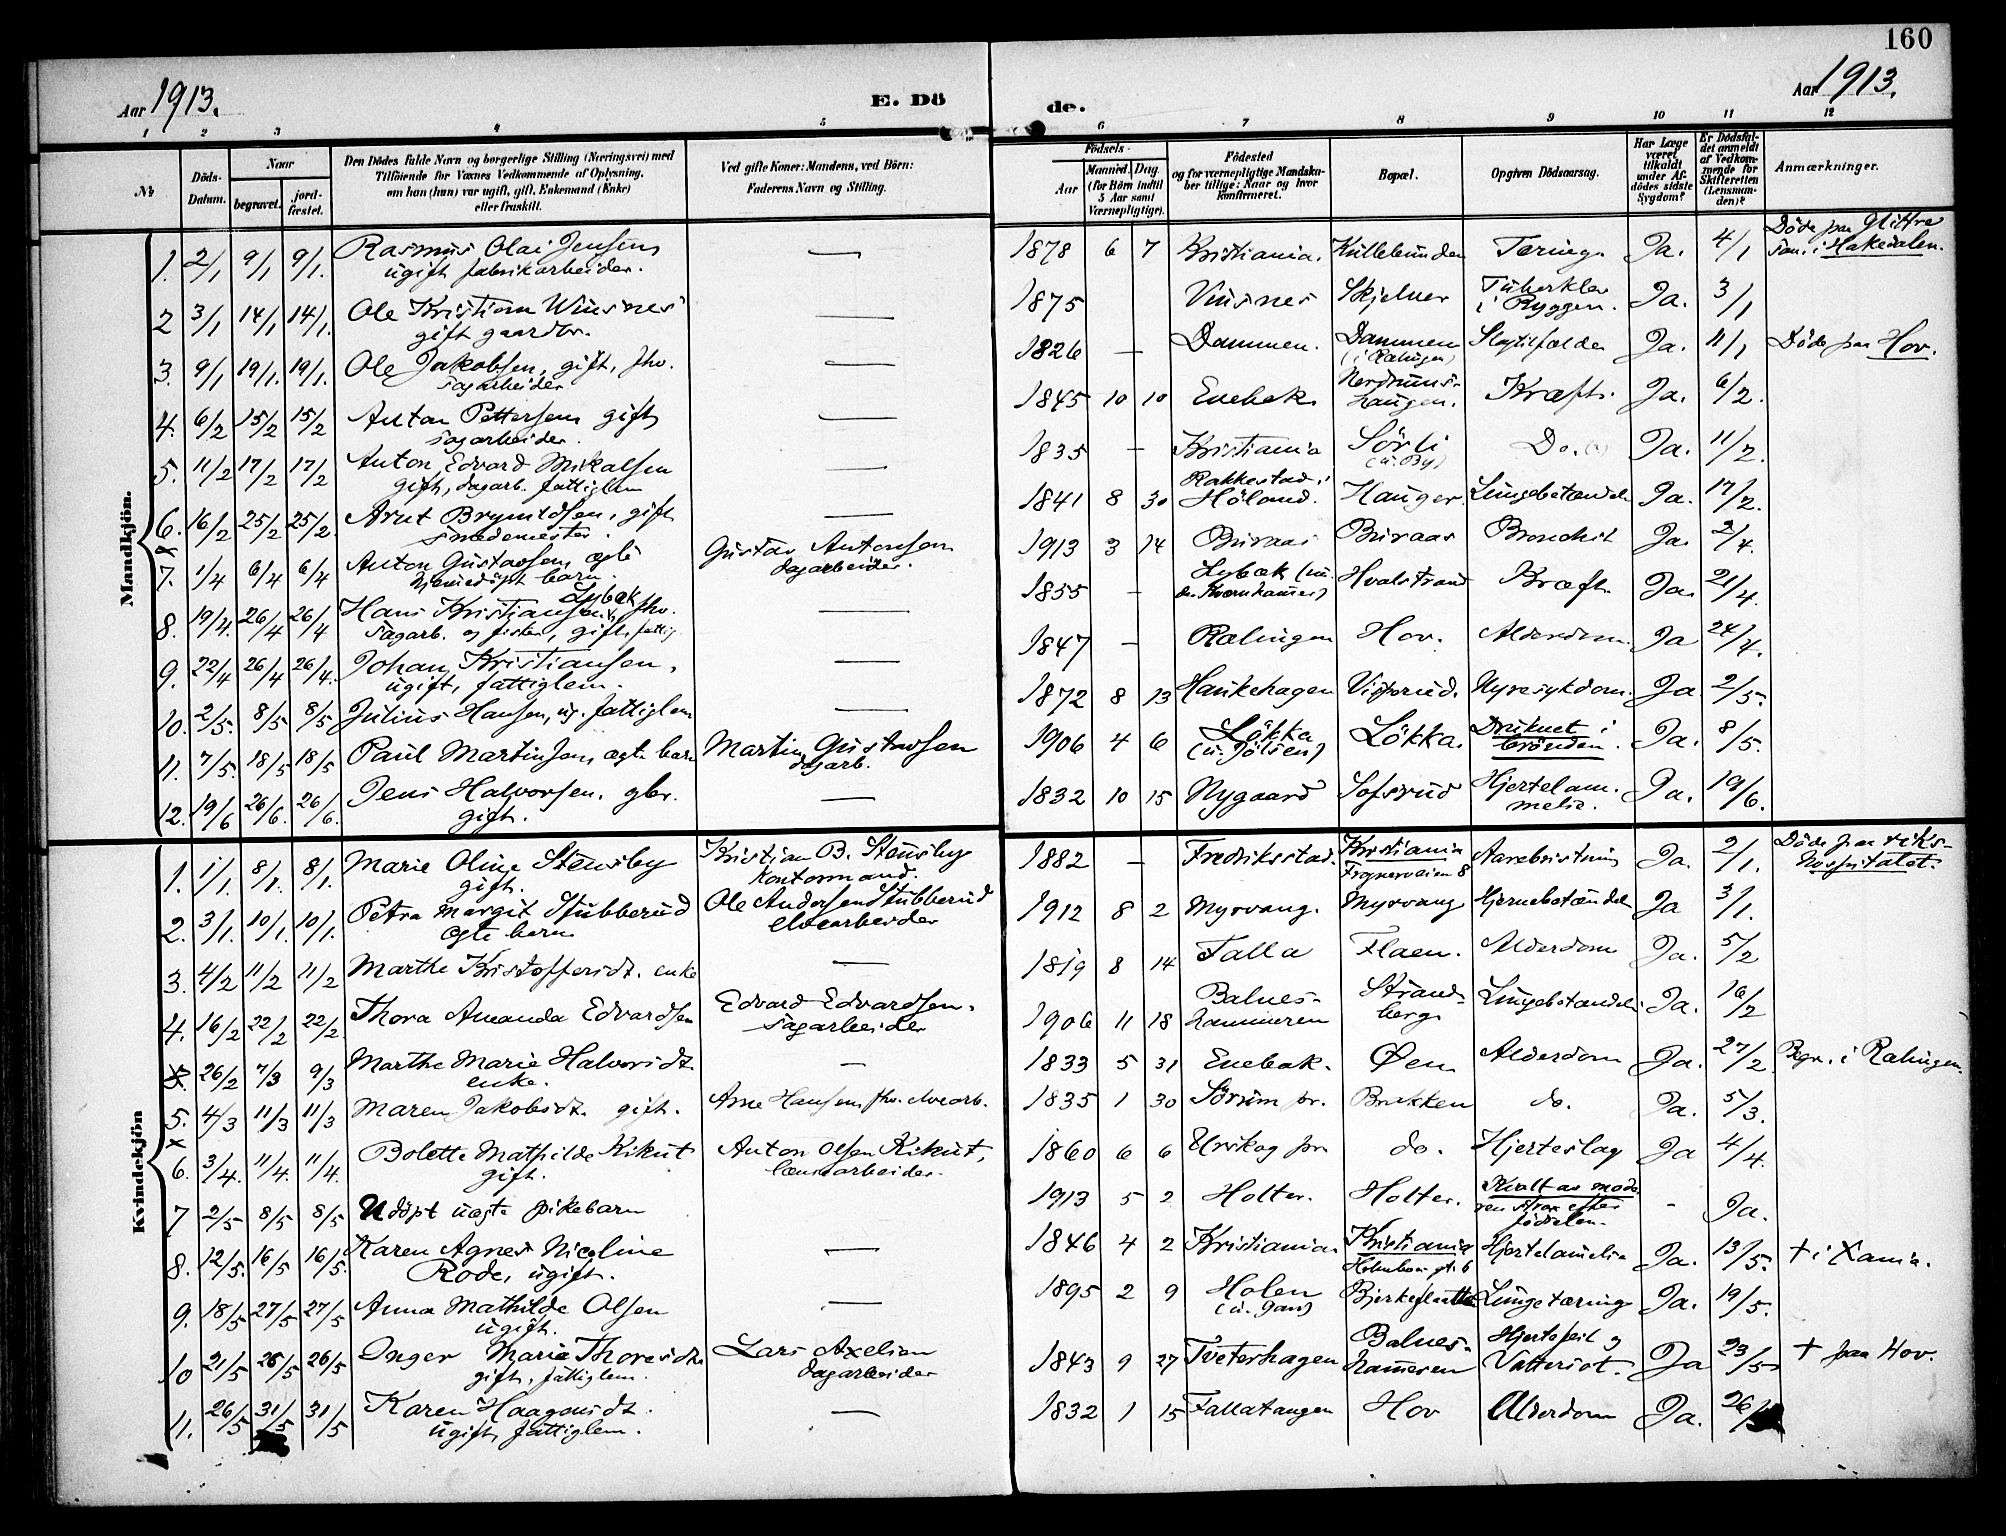 160
Aar 1913.
E. Döde.
Aar 1913.
1 2 3 4 5 6 7 8 9 10 11 12
№
Döds-Datum.
Naar
begravet.
jordfæstet.
Den Dödes fulde Navn og borgerlige Stilling (Næringsvei) med
Tilföiende for Voxnes Vedkommende af Oplysning,
om han (hun) var ugift, gift, Enkemand (Enke)
eller fraskilt.
Ved gifte Koner: Mandens, ved Börn:
Faderens Navn og Stilling.
Födsels-
Aar
Maaned. Dag.
(for Börn indtil
5 Aar samt
Værnepligtige).
Födested
og for værnepligtige Mandskaber tillige: Naar og hvor
konfirmeret.
Bopæl.
Opgiven Dödsaarsag.
Har Læge været tilkaldt under Afdödes sidste Sygdom?
Er Dödsfaldet anmeldt af Vedkommende for Skifteretten (Lensmanden)?
Anmærkninger.
Mandkjön.
1. 2/1 9/1 9/1. Rasmus Olai Jensen ugift fabrikarbeider. — 1878 6 7 Kristiania. Kullebunden Tæring. Ja. 4/1 Döde paa Glittre san. i Hakedalen.
2 3/1 14/1 14/1. Ole Kristian Wiusnes gift gaardbr. — 1875 Viusnes Skjelver Tuberkler i Ryggen. Ja. 3/1
3. 9/1 19/1. 19/1. Ole Jakobsen, gift, fhv. sagarbeider — 1826 — Dammen. Dammen (i Rælingen) Slagtilfælde Ja. 11/1 Döde paa Hov.
4. 6/2 15/2 15/2 Anton Pettersen gift sagarbeider. — 1845 10 10 Enebak Nerdrums-haugen. Kræft. Ja. 6/2.
5. 11/2 17/2 17/2 Anton Edvard Mikalsen gift, dagarb. fattiglem — 1835 — Kristiania Sörli (u. By) Do. Ja. 11/2.
6. 16/2 25/2 25/2 Arnt Brynildsen, gift smedemester. — 1841 8 30 Rakkestad i Höland. Hauger. Lungebetændelse Ja. 17/2.
7. 1/4 6/4 6/4 Anton Gustavsen ægte hjemedöpt barn. Gustav Antonsen dagarbeider. 1913 3 14 Buraas Buraas Bronchit Ja. 2/4.
8. 19/4. 26/4 26/4 Hans Kristiansen Lybæk fhv. sagarb. og fisker, gift, fattig — 1855 — Lybæk Hvalstrand Kræft Ja. 21/4.
9. 22/4 26/4 26/4. Johan Kristiansen, ugift, fattiglem. — 1847 — Rælingen Hov. Alderdom. Ja 24/4.
10. 2/5. 8/5 8/5 Julius Hansen, ug. fattiglem — 1872 8 13 Haukehagen Visperud. Nyresykdom. Ja 2/5.
11. 7/5. 18/5 18/5 Paul Martinsen ægte barn Martin Gustavsen dagarb. 1906 4 6 Lökka (u. Jölsen) Lökka. Druknet i brönden. Ja. 8/5.
12. 19/6 26/6. 26/6. Jens Halvorsen. gbr. gift. — 1832 10 15 Nygaard Sofsrud Hjertelammelse. Ja. 19/6.
Kvindekjön
1. 1/1 8/1. 8/1. Marie Oline Stensby gift. Kristian B. Stensby Kontormand. 1882 — Fredriksstad. Kristiania Frognerveien 8 Aarebristning Ja. 2/1. Döde paa rikshospitalet.
2. 3/1. 10/1. 10/1. Petra Margit Stubberud ægte barn Ole Andersen Stubberud elvearbeider 1912 8 2 Myrvang. Myrvang Hjernebetændelse Ja 3/1.
3. 4/2 11/2 11/2 Marthe Kristoffersdt. enke — 1819 8 14 Falla Flaen. Alderdom Ja. 5/2
4. 16/2 22/2 22/2. Thora Amanda Edvardsen Edvard Edvardsen. sagarbeider 1906 11 18 Balnes-hammeren Strand-berg Lungebetændelse Ja. 16/2
26/2 7/3 9/3 Marthe Marie Halvorsdt. enke. — 1833 5 31 Enebak. Øen Alderdom Ja. 27/2 Begr. i Rælingen.
5. 4/3 11/3 11/3 Maren Jakobsdt. gift. Arne Hansen fhv. elvearb. 1835 1 30 Sörum pr. Brakken do. Ja. 5/3.
6. 3/4. 11/4. 11/4. Bolette Mathilde Kikut gift. Anton Olsen Kikut, lænsearbeider. 1860 6 6 Urskog pr. do. Hjerteslag Ja 4/4.
7 2/5 8/5 8/5 Udöpt uægte pikebarn 1913 5 2 Holter. Holter. Kvalt av moderen strax efter födselen. - Ja.
8. 12/5. 16/5 16/5. Karen Agnes Nicoline Rode, ugift. — 1846 4 2 Kristiania. Kristiania Hjertelammelse Ja. 13/5. + i Xania.
9. 18/5 27/5 27/5 Anna Mathilde Olsen ugift. — 1895 2 9 Holen (u. Gan) Bjerkesletta Lungetæring Ja. 19/5.
10 21/5 26/5 26/5 Inger Marie Thoresdt. gift, fattiglem. Lars Axelsen dagarbeider 1843 9 27 Tveterhagen Balnes-hammeren Hjertefeil og Vattersot. Ja 23/5 + paa Hov.
11. 26/5 31/5 31/5 Karen Haagensdt. ugift, fattiglem. — 1832 1 15 Fallatangen Hov Alderdom Ja. 26/5